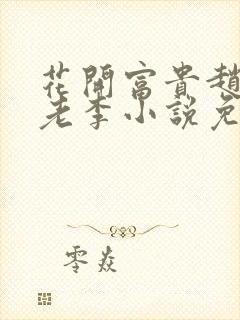 花開富貴趙
老李小說免
零焱